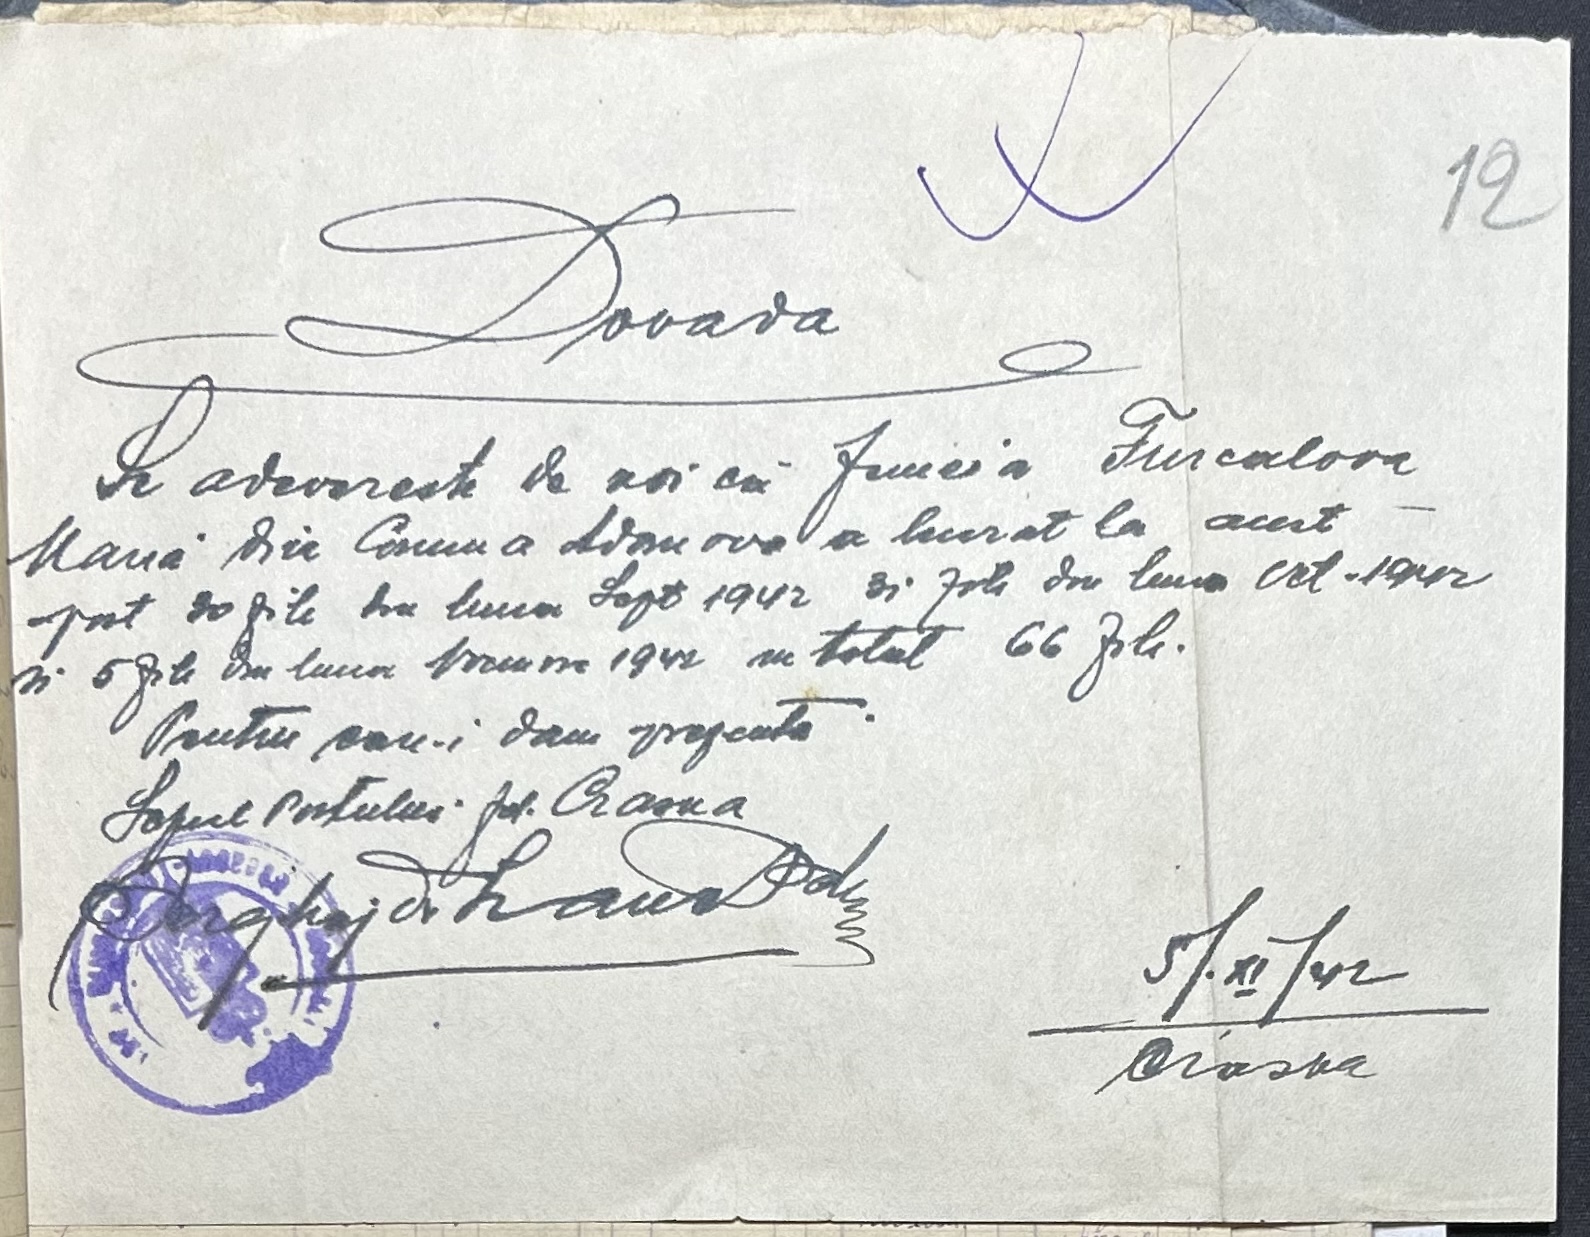 12
Dovada
Se adevereste de noi că femeia Furcalova
Maria din Comuna Adamova a lucrat la acest
post 30 zile din luna Sept 1942 si zile din luna Oct. 1942
si 5 zile din luna 1942 in total 66 zile.
Pentru care-i dam prezenta.
Seful Postului Jd. Crasna
5/.XI/42
Crasna